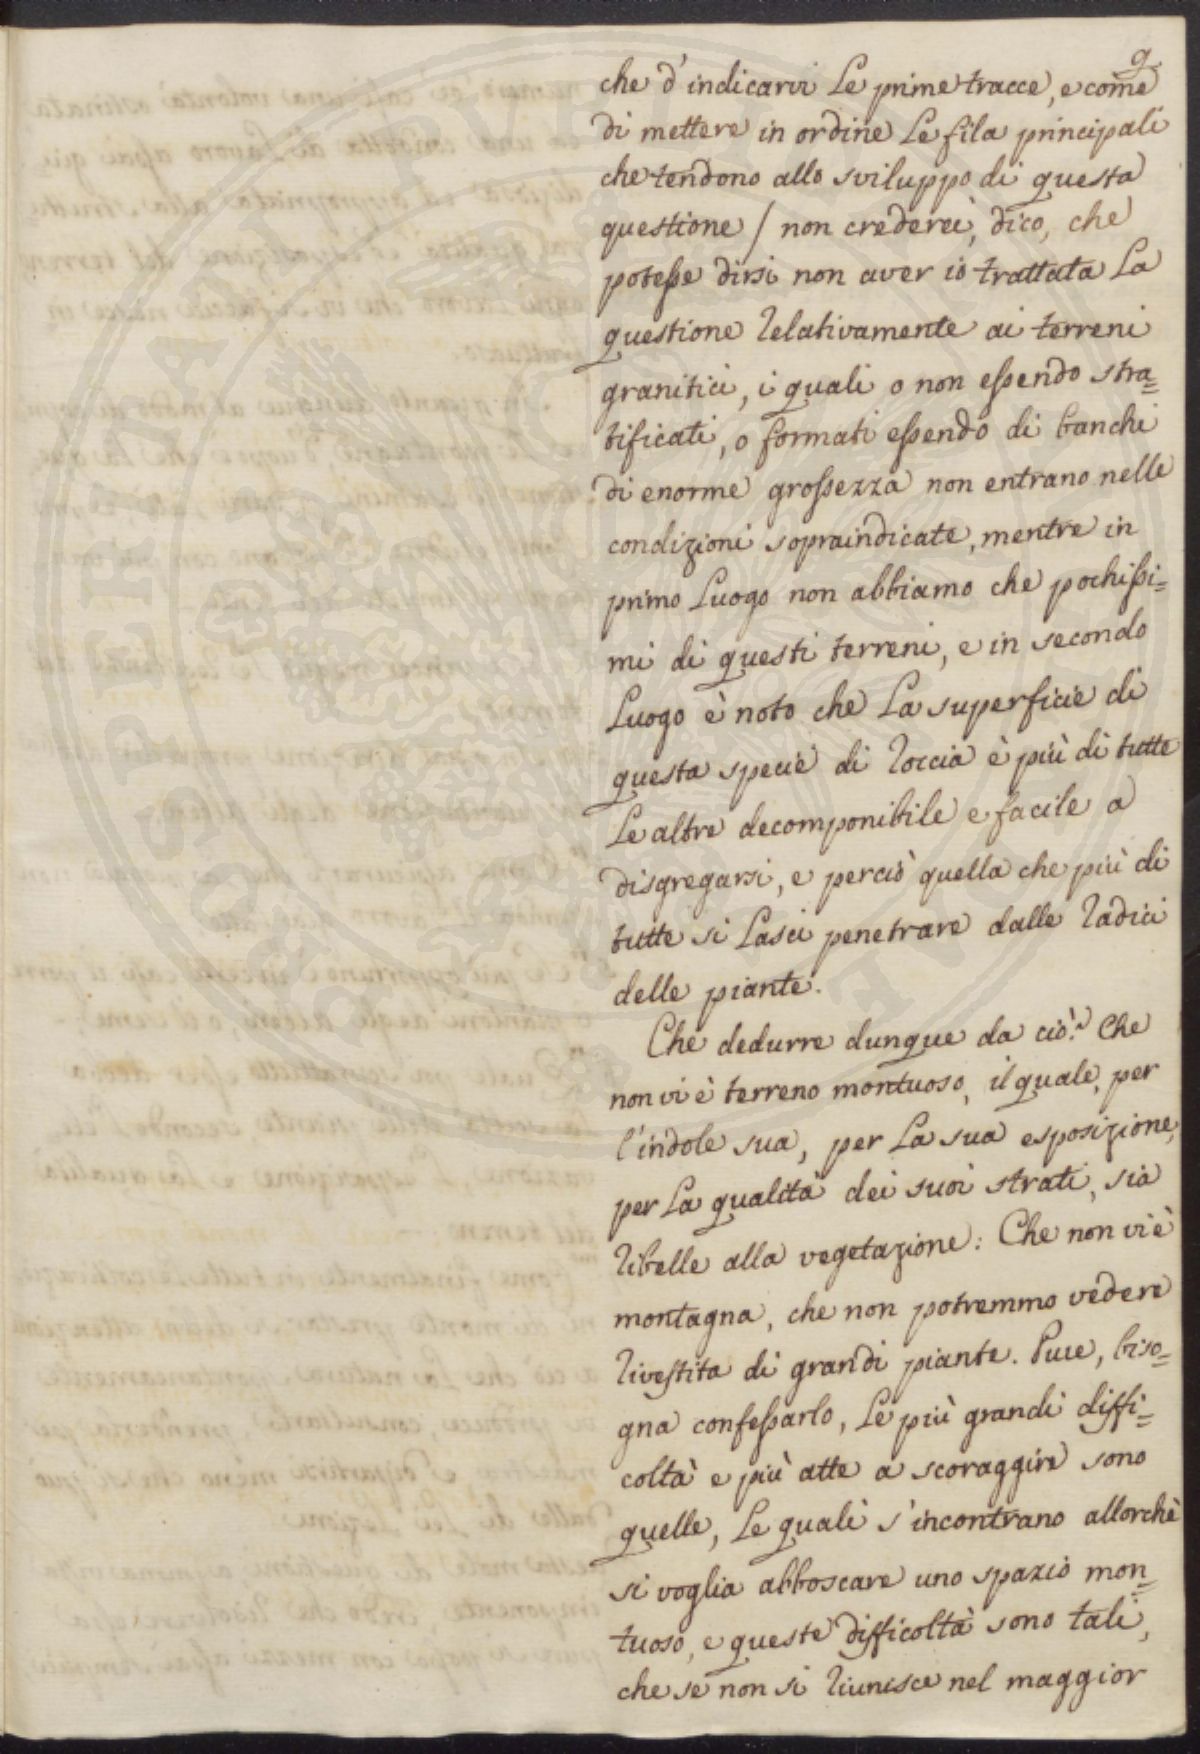 9.
che d'indicarvi le prime tracce, e come
di mettere in ordine le fila principali
che tendono allo sviluppo di questa
questione / non crederei, dico, che
potesse dirsi non aver io trattata la
questione relativamente ai terreni
granitici, i quali o non essendo stra=
tificati, o formati essendo di banchi
di enorme grossezza non entrano nelle
condizioni sopraindicate, mentre in
primo luogo non abbiamo che pochissi=
mi di questi terreni, e in secondo
luogo è noto che la superficie di
questa specie di roccia è più di tutte
le altre decomponibile e facile a
disgregarsi, e perciò quella che più di
tutte si lasci penetrare dalle radici
delle piante.
Che dedurre dunque da ciò? Che
non vi è terreno montuoso, il quale, per
l'indole sua, per la sua esposizione,
per la qualità dei suoi strati, sia
ribelle alla vegetazione: Che non vi è
montagna, che non potremmo vedere
rivestita di grandi piante. Pure, biso=
gna confessarlo, le più grandi diffi=
coltà e più atte a scoraggire sono
quelle, le quali s'incontrano allorchè
si voglia abboscare uno spazio mon=
tuoso, e queste difficoltà sono tali,
che se non si riunisce nel maggior